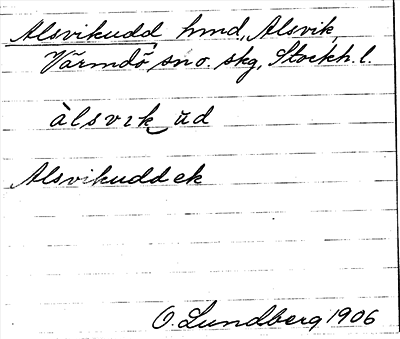 Alsvikudd hmd, Alsvik,
Värmdö sn o. skg, Stockh. l.
àlsvik ud
Alsvikudd ek
O. Lundberg 1906